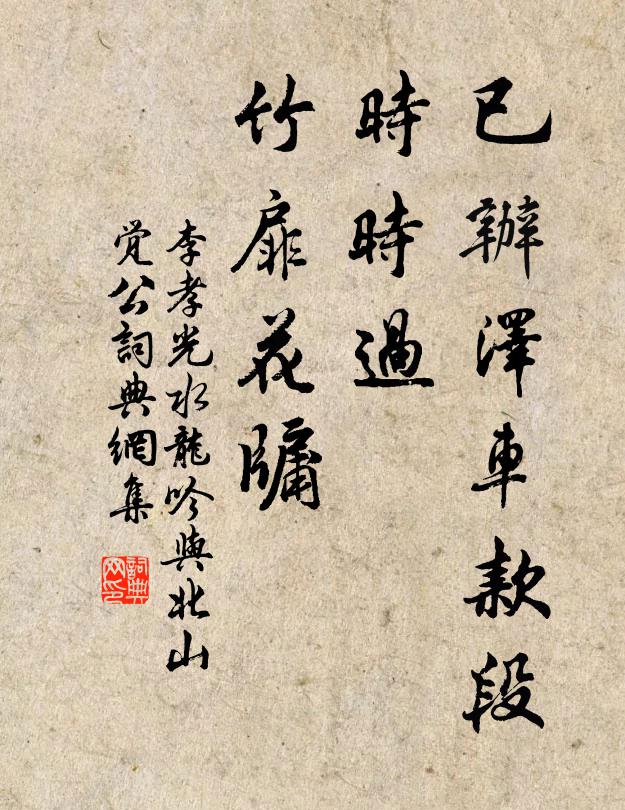 已辦澤車款段
時時過
竹扉花牖
李孝光水龍吟與北山
覺公詞典網集
詞典
网印